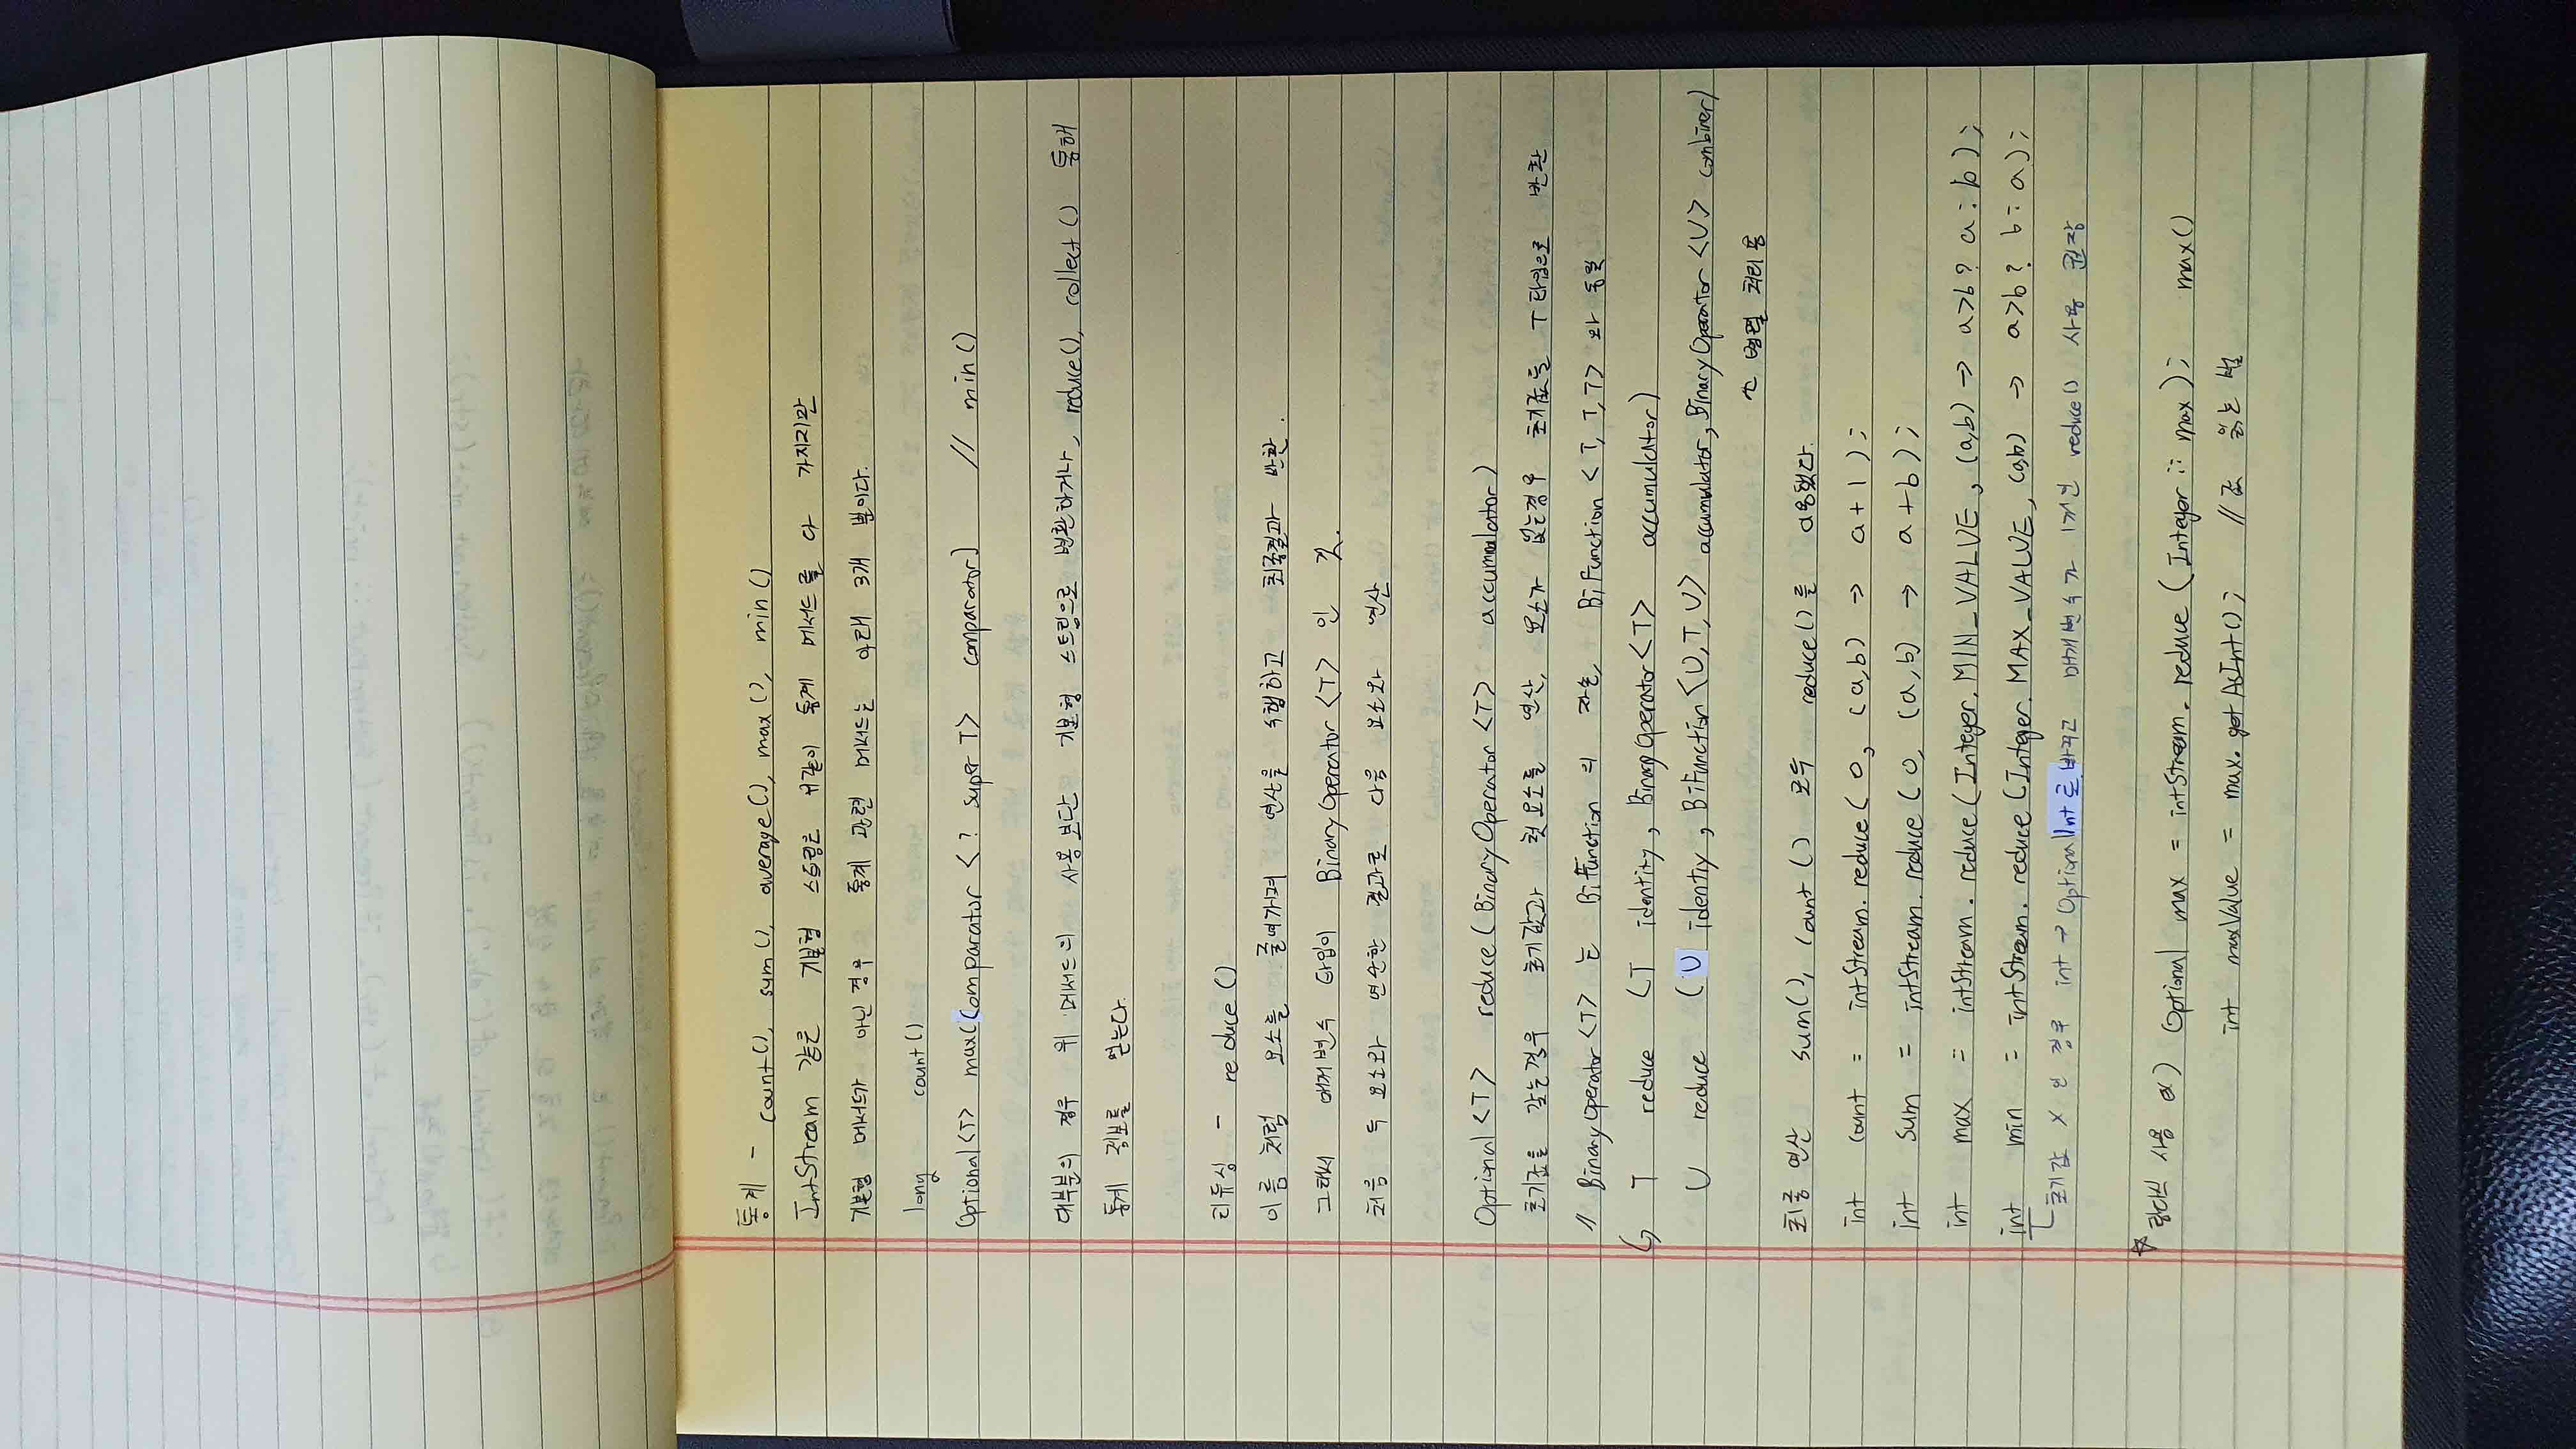 통계 - count(), sum(), average(), max(), min()
IntStream 같은 기본형 스트림은 위같이 통계 메서드를 다 가지지만
기본형 메서드가 아닌 경우 통계 관련 메서드는 아래 3개 뿐이다.
long count()
Optional<T> max(Comparator <? super T> comparator) // min()
대부분의 경우 위 메서드의 사용보단 기본형 스트림으로 변환하거나, reduce(), collect() 통해
통계 정보를 얻는다.
리듀싱 - reduce()
이름 처럼 요소를 줄여가며 연산을 수행하고 최종결과 반환.
그래서 매개변수 타입이 BinaryOperator<T> 인 것.
처음 두 요소와 연산한 결과로 다음 요소와 연산
Optional<T> reduce(BinaryOperator<T> accumulator)
초기값을 갖는경우 초기값과 첫 요소를 연산, 요소가 없는경우 초기값을 T타입으로 반환
// BinaryOperator<T> 는 BiFunction 의 자손, BiFunction <T, T, T> 와 동일
↳ T reduce (T identity, BinaryOperator<T> accumulator)
U reduce (U identiy, BiFunction<U,T,U> accumulator, BinaryOperator<U> combiner)
병렬 처리용
최종 연산 sum(), count() 모두 reduce()를 사용했다.
int count = intStream.reduce(0, (a,b) → a+1);
int sum = intStream.reduce(0, (a,b) → a+b);
int max = intStream.reduce(Integer.MIN_VALUE, (a,b) → a>b? a:b);
int min = intStream.reduce(Integer.MAX_VALUE, (a,b) → a>b? b:a);
초기값 X 인 경우 int → OptionalInt로 바꾸고 매개변수가 1개인 reduce() 사용 권장
☆ 람다식 사용 ex) Optional max = intStream.reduce(Integer::max); max()
int maxValue = max.getAsInt(); // 값 읽는 법